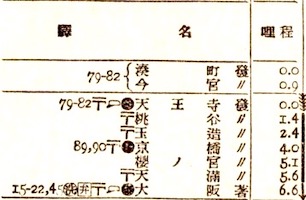 驛 名 哩程
79-82 湊町 發 0.0
今宮 〃 0.9
79-82 〒 天王寺 發 0.0
〒 桃谷 〃 1.4
〒 玉造 〃 2.4
89,90 〒 京橋 〃 4.0
櫻ノ宮 〃 5.1
〒 天滿 〃 5.6
15-22,45 〒 大阪 著 6.6